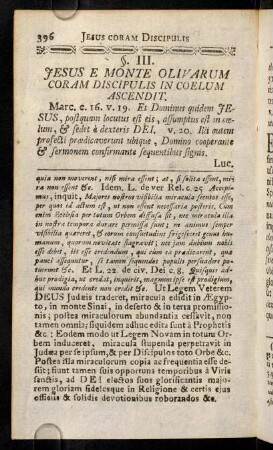 396 JESUS CORAM DISCIPULIS
§. III.
JESUS E MONTE OLIVARUM
CORAM DISCIPULIS IN COELUM
ASCENDIT.
Marc. c. 16. v. 19. Et Dominus quidem JE-
SUS, postquam locutus est eis, assumptus est in cæ-
lum, & sedet à dexteris DEI. v. 20. Illi autem
profecti prædicaverunt ubique, Domino cooperante
& sermonem confirmante sequentibus signis.
Luc.
quia non moverent, nisi mira essent; at, si solita essent, mi-
ra non essent &c. Idem. L. de ver Rel. c. 25 Accepi-
mus, inquit, Majores nostros visibilia miracula secutos esse,
per quos id actum est, ut non essent necessaria posteris. Cum
enim Ecclesia per totum Orbem diffusa sit, nec miracula illa
in nostra tempora durare permissa sunt; ne animus semper
visibilia quæreret, & eorum consuetudine frigesceret genus hu-
manum, quorum novitate flagravit; nec jam dubium nobis
esse debet, iis esse credendum, qui cum ea prædicarent, quæ
pauci assequuntur, se tamen sequendos populis persuadere po-
tuerunt &c. Et L. 22. de civ. Dei c. 8. Quisquis ad-
huc prodigia, ut credat, inquirit, magnum ipse est prodigium,
qui mundo credente non credit &c. Ut Legem Veterem
DEUS Judæis traderet, miracula edidit in Ægyp-
to, in monte Sinai, in deserto & in terra promissio-
nis; postea miraculorum abundantia cessavit, non
tamen omnia; siquidem adhuc edita sunt à Prophetis
&c.: Eodem modo ut Legem Novam in totum Or-
bem induceret, miracula stupenda perpetravit in
Judæa per se ipsum, & per Discipulos toto Orbe &c.
Postea illa miraculorum copia ac frequentia esse de-
siit; fiunt tamen suis opportuna temporibus à Viris
sanctis, ad DEI electos suos glorificantis majo-
rem gloriam fidelesque in Religione & certis ejus
officiis & solidis devotionibus roborandos &c.